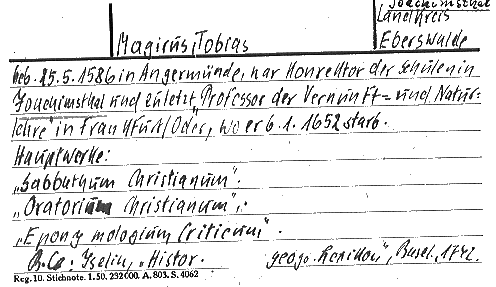 Joachimsthal
Landkreis
Magirus, Tobias
Eberswalde
geb. 25.5.1586 in Angermünde, war Konrektor der Schulen in
Joachimsthal und zuletzt „Professor der Vernunft- und Natur-
lehre" in Frankfurt/Oder, wo er 6.1.1652 starb.
Hauptwerke:
„Sabbathum Christianum".
„Oratorium Christianum".
„Eponymologium Criticum".
Iselin, „Histor. geogr. Lexikon", Basel, 1742.
Reg. 10. Stichnote. 1. 50. 232000. A. 803. S. 4062